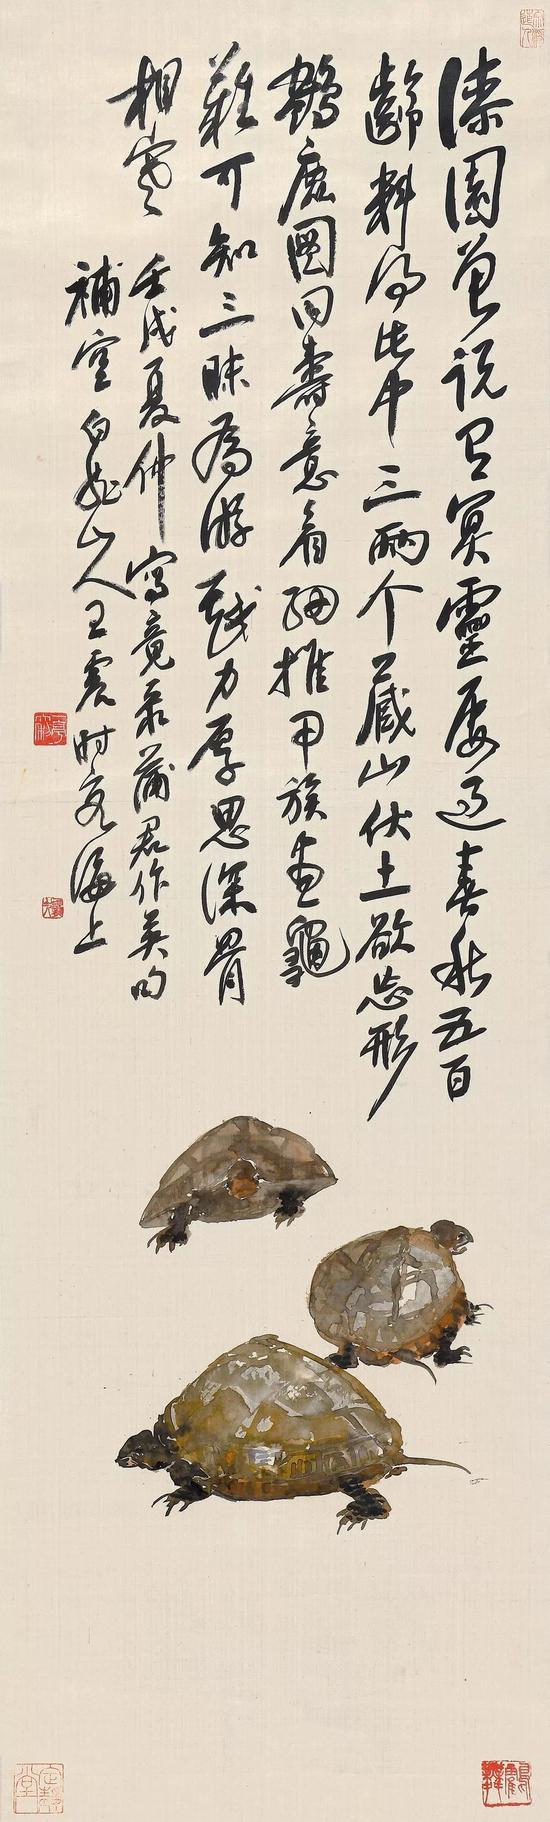 漆園曾説有冥靈屡過春秋五百
齡料得此中三兩个藏山伏土欲忘形
鶴鹿圖同壽意看細推甲族畫龜
難可知三昧為游戲力厚思深骨
相寒
壬戌夏仲寫竟录蒲君作英句
補空白龙山人王震时客海上